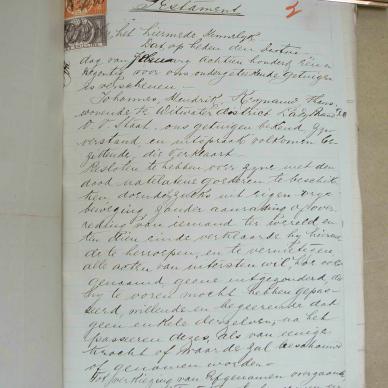 Testament
Zy het hiermede kennelyk
Dat op heden den Zestien
dag van January Achtien honderd Een en
Negentig voor ons ondergetekende getuigen
is verschenen —
Johannes Hendrik
wonende te Witwater district Ladybrand
O. V. Staat, ons getuigen bekend zyn
verstand en uitspraak volkomen be-
zittende, die verklaart
Besloten te hebben over zyne met den
dood natelatene goederen te beschik-
ken, doende zulks uit eigen vrye
beweging zonder aanrading of over-
reding van iemand ter wereld en
ten dien einde verklaarde hy hierme-
de te herroepen, en te vernietigen
alle akten van uitersten wil, hoe ook
genaamd, geene uitgezonderd, die
hy te voren mocht hebben gepas-
seerd, willende en begeerende dat
geen enkele derzelven, na het
passeeren dezes, als van eenige
kracht of waarde zal beschouwd
of genomen worden —
Tot